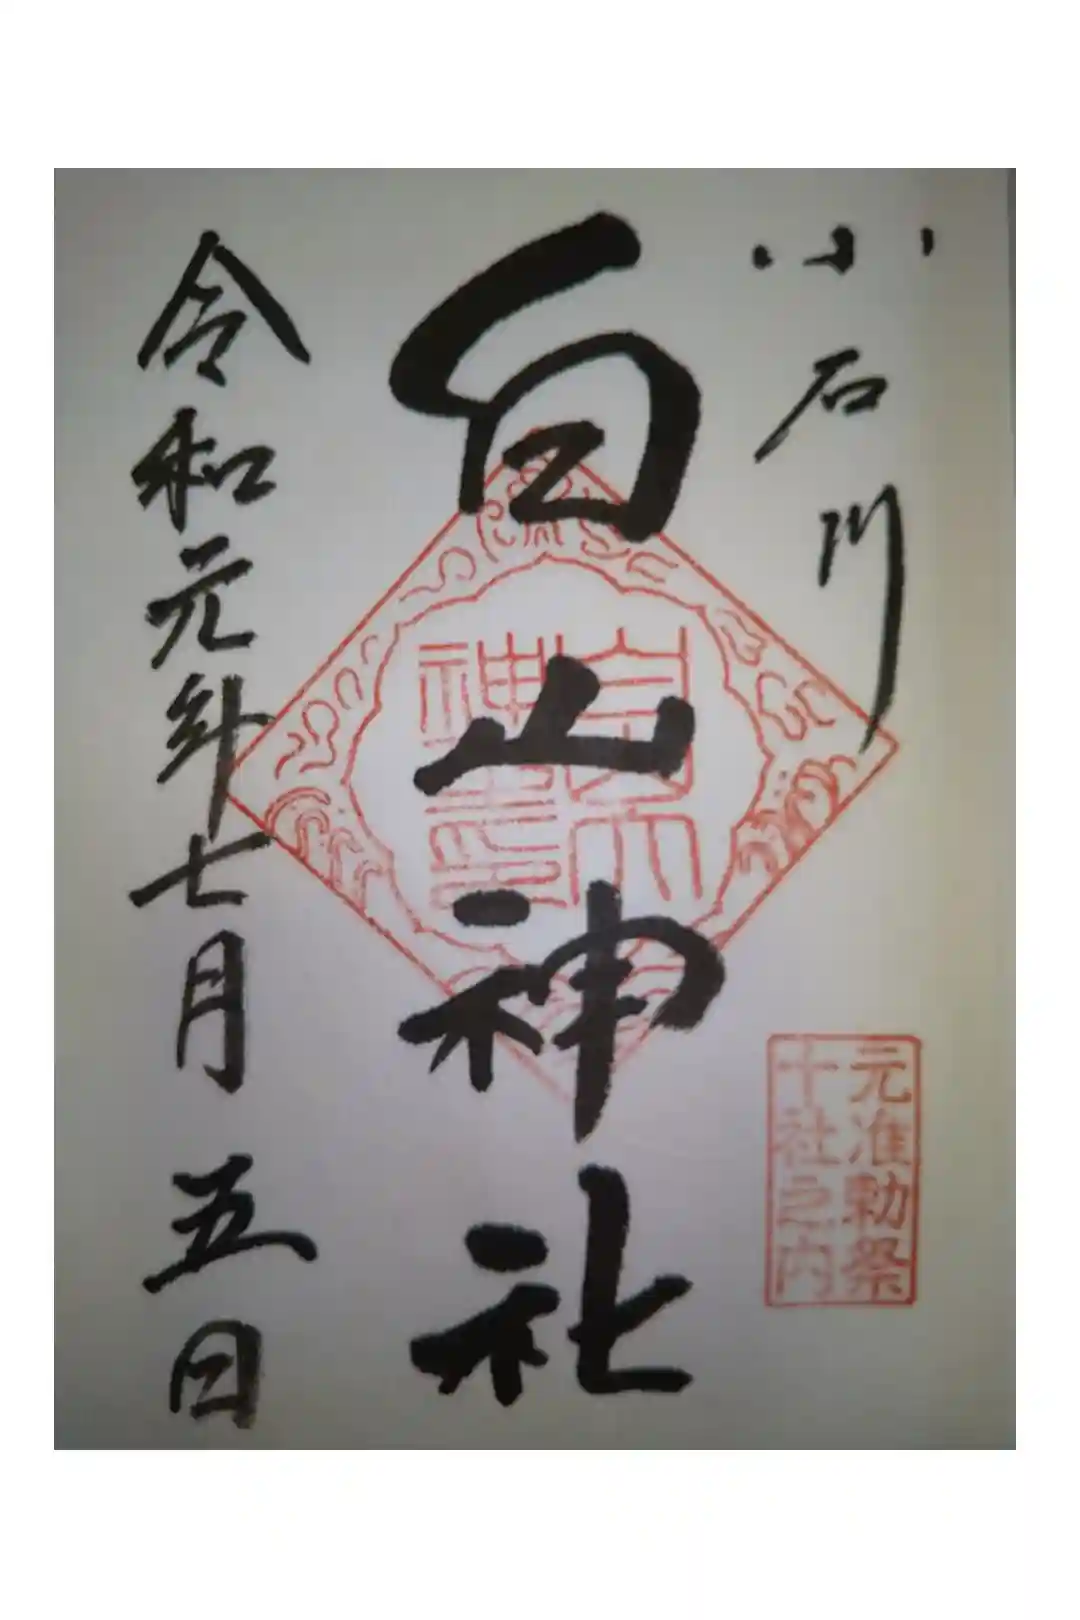 小石川
元准勅祭
十社之内
白山神社
令和元年七月五日